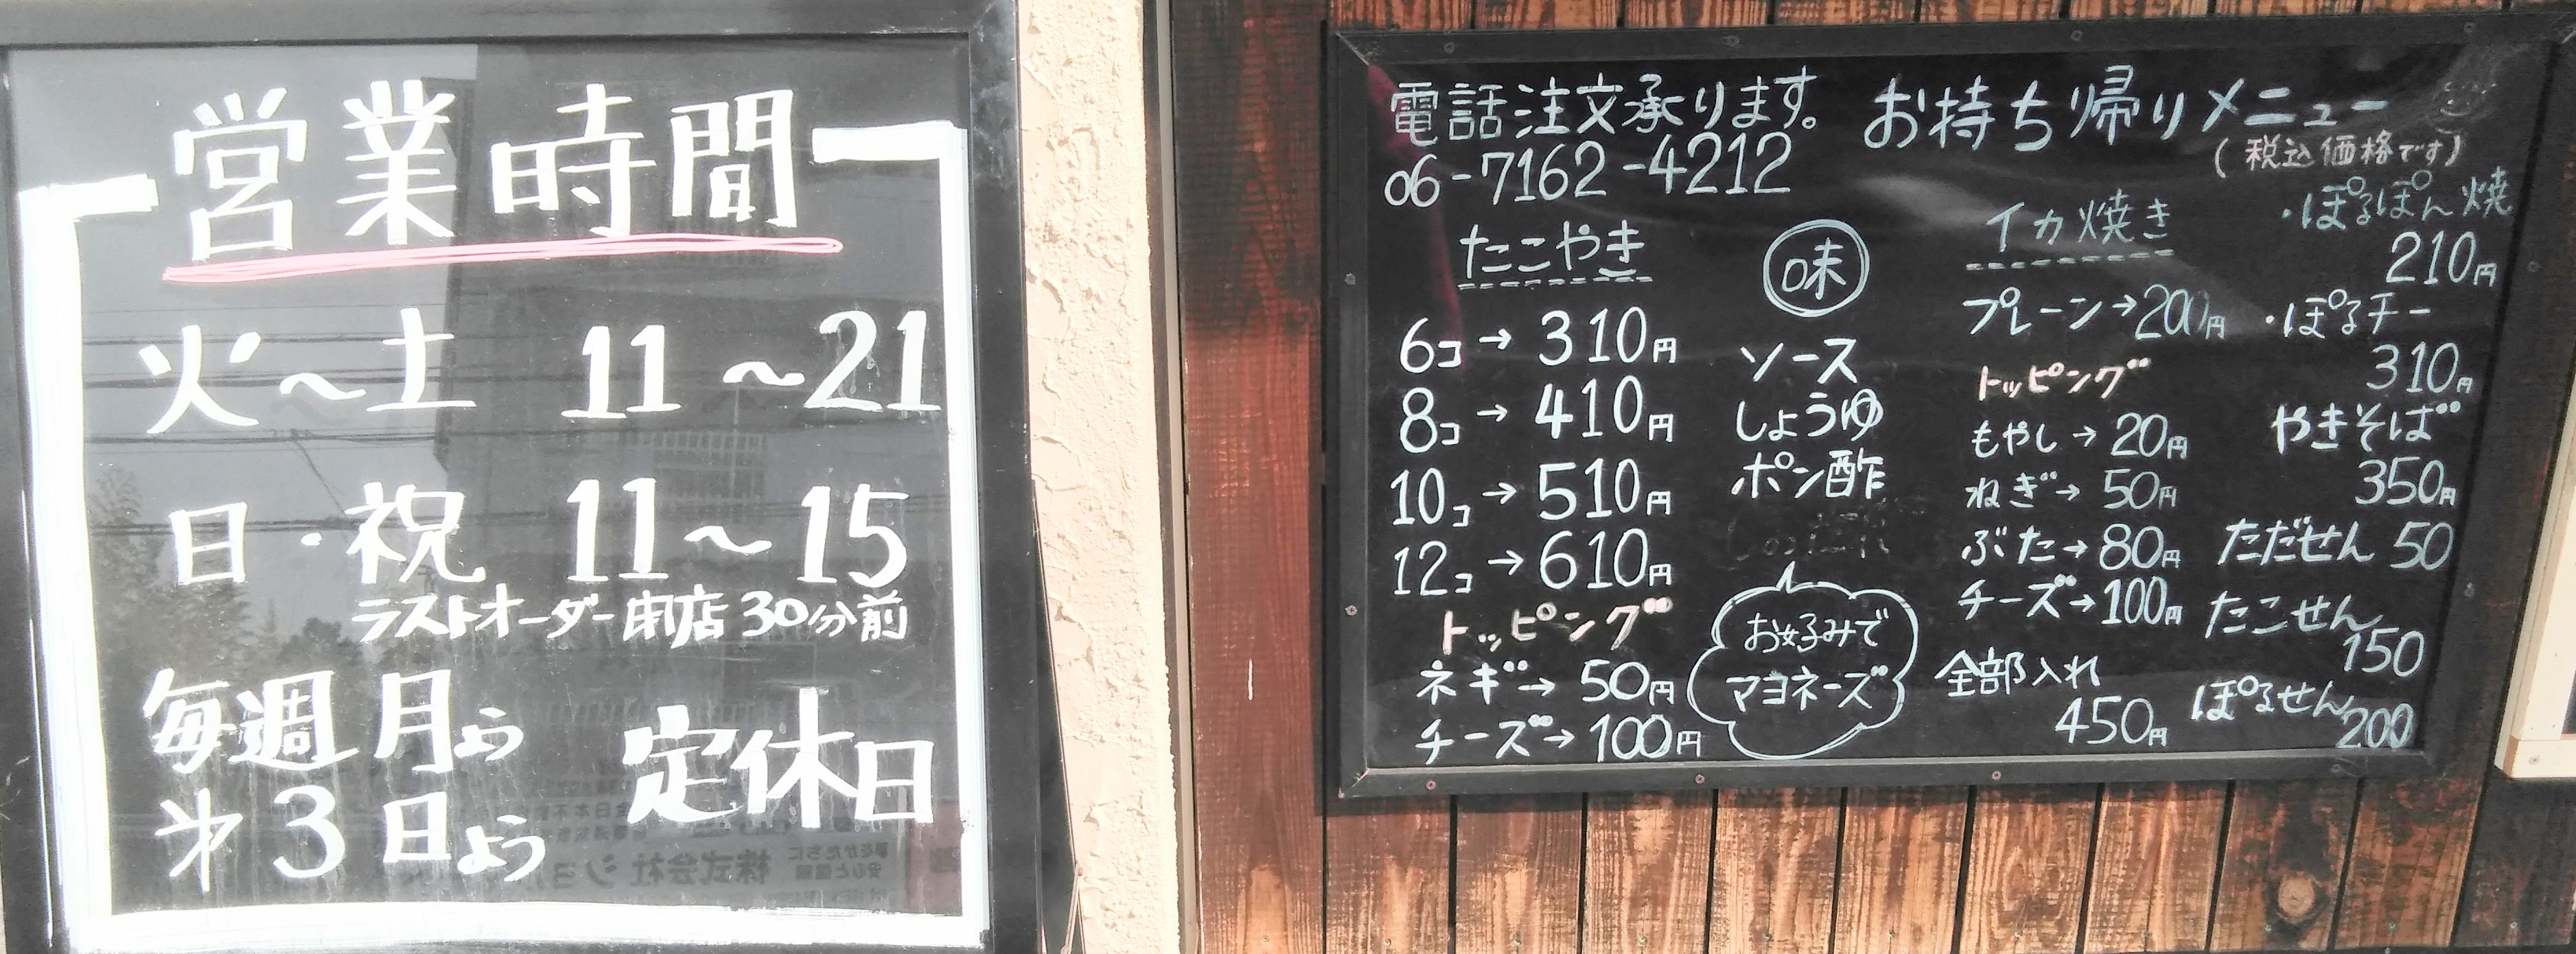 営業時間
火～土 11～21
日・祝 11～15
ラストオーダー閉店30分前
毎週月よう
第3日よう
定休日
電話注文承ります。
06-7162-4212
お持ち帰りメニュー
(税込価格です)
たこやき
6コ→310円
8コ→410円
10コ→510円
12コ→610円
トッピング
ネギ→50円
チーズ→100円
味
ソース
しょうゆ
ポン酢
お好みで
マヨネーズ
イカ焼き
プレーン→200円
トッピング
もやし→20円
ねぎ→50円
ぶた→80円
チーズ→100円
全部入れ
450円
・ぽるぽん焼
210円
・ぽるチー
310円
やきそば
350円
ただせん 50
たこせん
150
ぽるせん
200